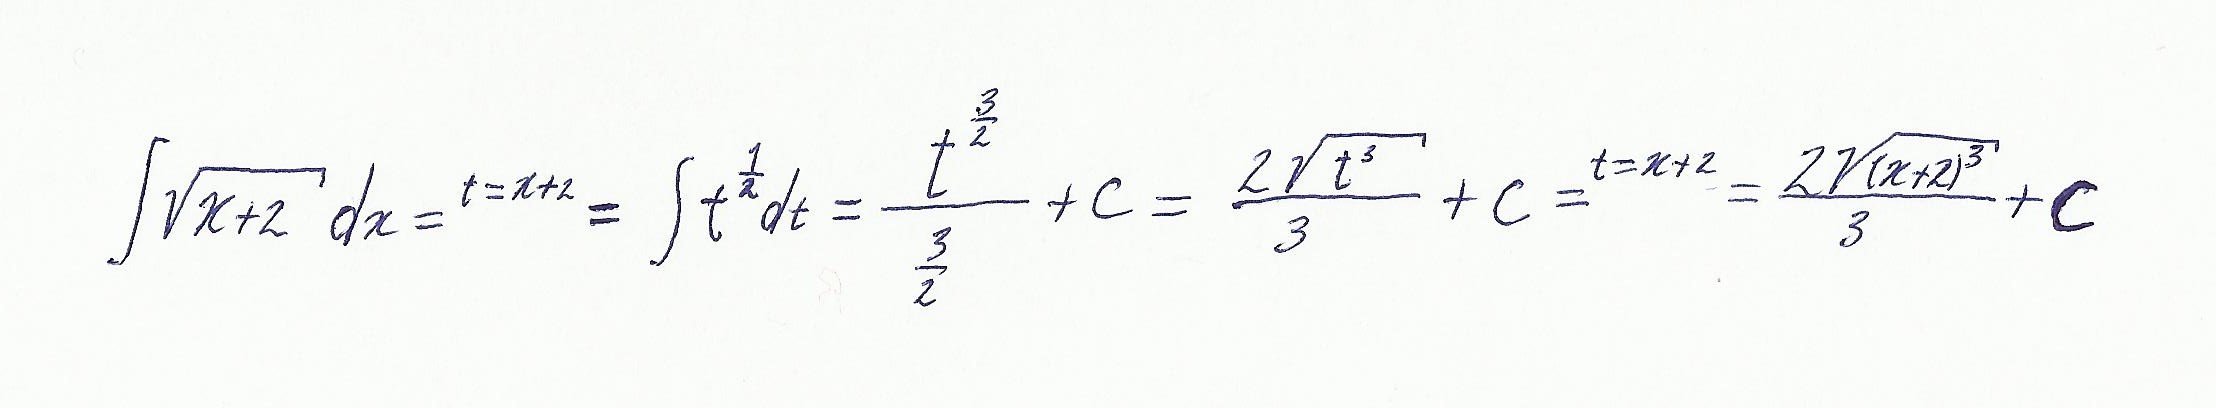 ∫√(x+2) dx = ^{t=x+2} = ∫t^{1/2}dt = t^{3/2}/(3/2) + C = 2√(t³)/3 + C = ^{t=x+2} = 2√((x+2)³)/3 + C